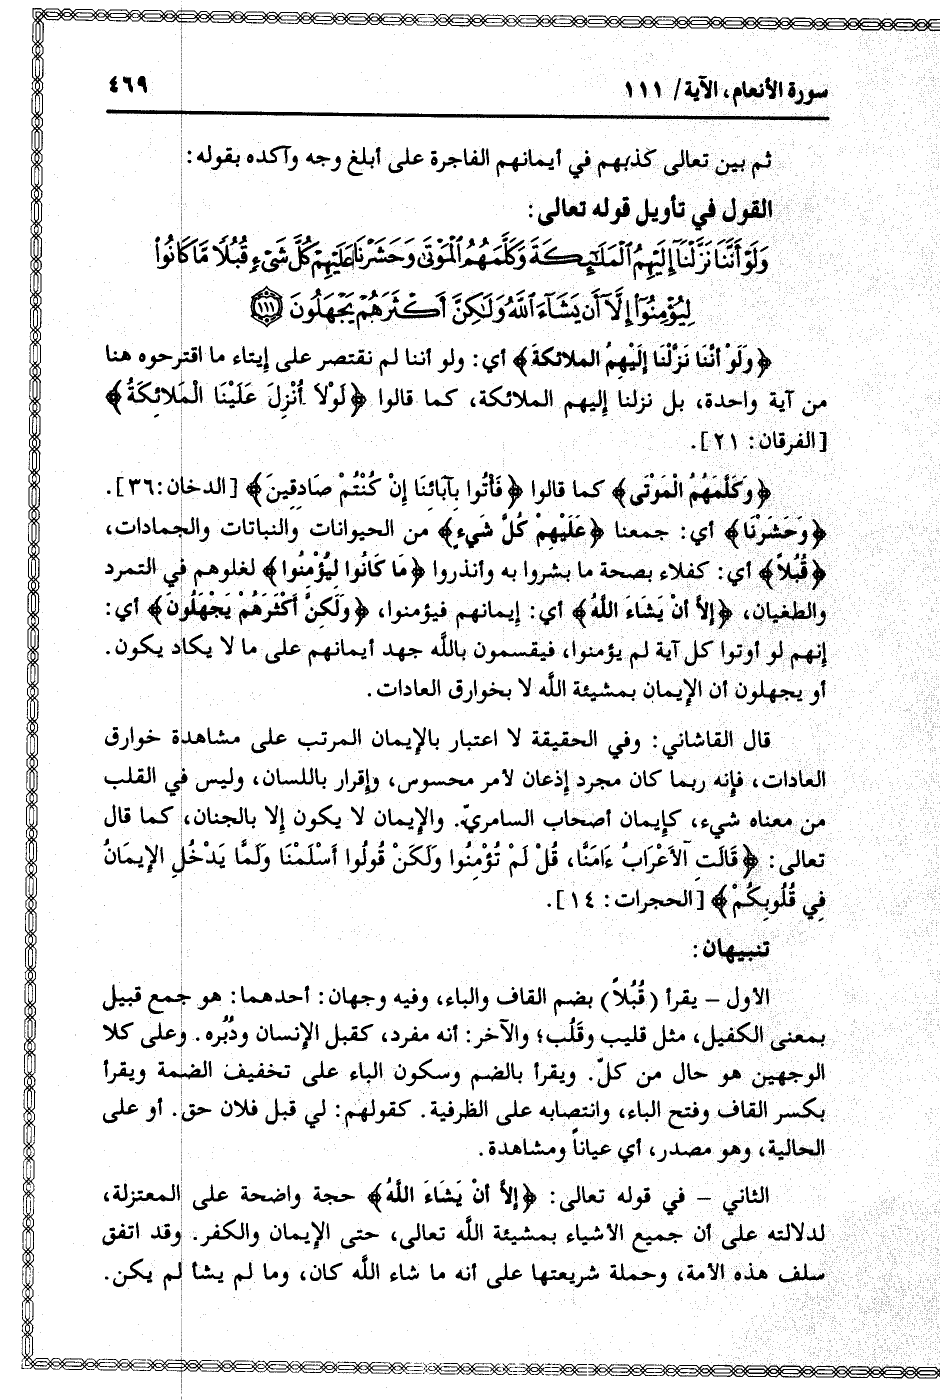 سورة الأنعام، الآية/ ١١١
٤٦٩
ثم بين تعالى كذبهم في أيمانهم الفاجرة على أبلغ وجه وآكده بقوله:
القول في تأويل قوله تعالى:
وَلَوْ أَنَّنَا نَزَّلْنَآ إِلَيْهِمُ ٱلْمَلَـٰٓئِكَةَ وَكَلَّمَهُمُ ٱلْمَوْتَىٰ وَحَشَرْنَا عَلَيْهِمْ كُلَّ شَىْءٍ قُبُلًا مَّا كَانُوا۟
لِيُؤْمِنُوٓا۟ إِلَّآ أَن يَشَآءَ ٱللَّهُ وَلَـٰكِنَّ أَكْثَرَهُمْ يَجْهَلُونَ ١١١
﴿وَلَوْ أَنَّنَا نَزَّلْنَا إِلَيْهِمُ الملائكةَ﴾ أي: ولو أننا لم نقتصر على إيتاء ما اقترحوه هنا
من آية واحدة، بل نزلنا إليهم الملائكة، كما قالوا ﴿لَوْلَا أُنْزِلَ عَلَيْنَا الْمَلائِكَةُ﴾
[الفرقان: ٢١].
﴿وَكَلَّمَهُمُ الْمَوْتَى﴾ كما قالوا ﴿فَأْتُوا بِآبَائِنَا إِنْ كُنْتُمْ صَادِقِينَ﴾ [الدخان:٣٦].
﴿وَحَشَرْنَا﴾ أي: جمعنا ﴿عَلَيْهِمْ كُلَّ شَيءٍ﴾ من الحيوانات والنباتات والجمادات،
﴿قُبُلاً﴾ أي: كفلاء بصحة ما بشروا به وأنذروا ﴿مَا كَانُوا لِيُؤْمِنُوا﴾ لغلوهم في التمرد
والطغيان، ﴿إِلاَّ أَنْ يَشَاءَ اللَّهُ﴾ أي: إيمانهم فيؤمنوا، ﴿وَلَكِنَّ أَكْثَرَهُمْ يَجْهَلُونَ﴾ أي:
إنهم لو أوتوا كل آية لم يؤمنوا، فيقسمون باللَّه جهد أيمانهم على ما لا يكاد يكون.
أو يجهلون أن الإيمان بمشيئة اللَّه لا بخوارق العادات.
قال القاشاني: وفي الحقيقة لا اعتبار بالإيمان المرتب على مشاهدة خوارق
العادات، فإنه ربما كان مجرد إذعان لأمر محسوس، وإقرار باللسان، وليس في القلب
من معناه شيء، كإيمان أصحاب السامريّ. والإيمان لا يكون إلا بالجنان، كما قال
تعالى: ﴿قَالَتِ ٱلأَعْرَابُ ءَامَنَّا، قُلْ لَمْ تُؤْمِنُوا وَلَكنْ قُولُوا أَسْلَمْنَا وَلَمَّا يَدْخُلِ الإِيمَانُ
فِي قُلُوبِكُمْ﴾ [الحجرات: ١٤].
تنبيهان:
الأول – يقرأ (قُبُلاً) بضم القاف والباء، وفيه وجهان: أحدهما: هو جمع قبيل
بمعنى الكفيل، مثل قليب وقَلُب؛ والآخر: أنه مفرد، كقبل الإنسان ودُبُره. وعلى كلا
الوجهين هو حال من كلّ. ويقرأ بالضم وسكون الباء على تخفيف الضمة ويقرأ
بكسر القاف وفتح الباء، وانتصابه على الظرفية. كقولهم: لي قبل فلان حق. أو على
الحالية، وهو مصدر، أي عياناً ومشاهدة.
الثاني – في قوله تعالى: ﴿إِلاَّ أَنْ يَشَاءَ اللَّهُ﴾ حجة واضحة على المعتزلة،
لدلالته على أن جميع الأشياء بمشيئة اللَّه تعالى، حتى الإيمان والكفر. وقد اتفق
سلف هذه الأمة، وحملة شريعتها على أنه ما شاء اللَّه كان، وما لم يشأ لم يكن.